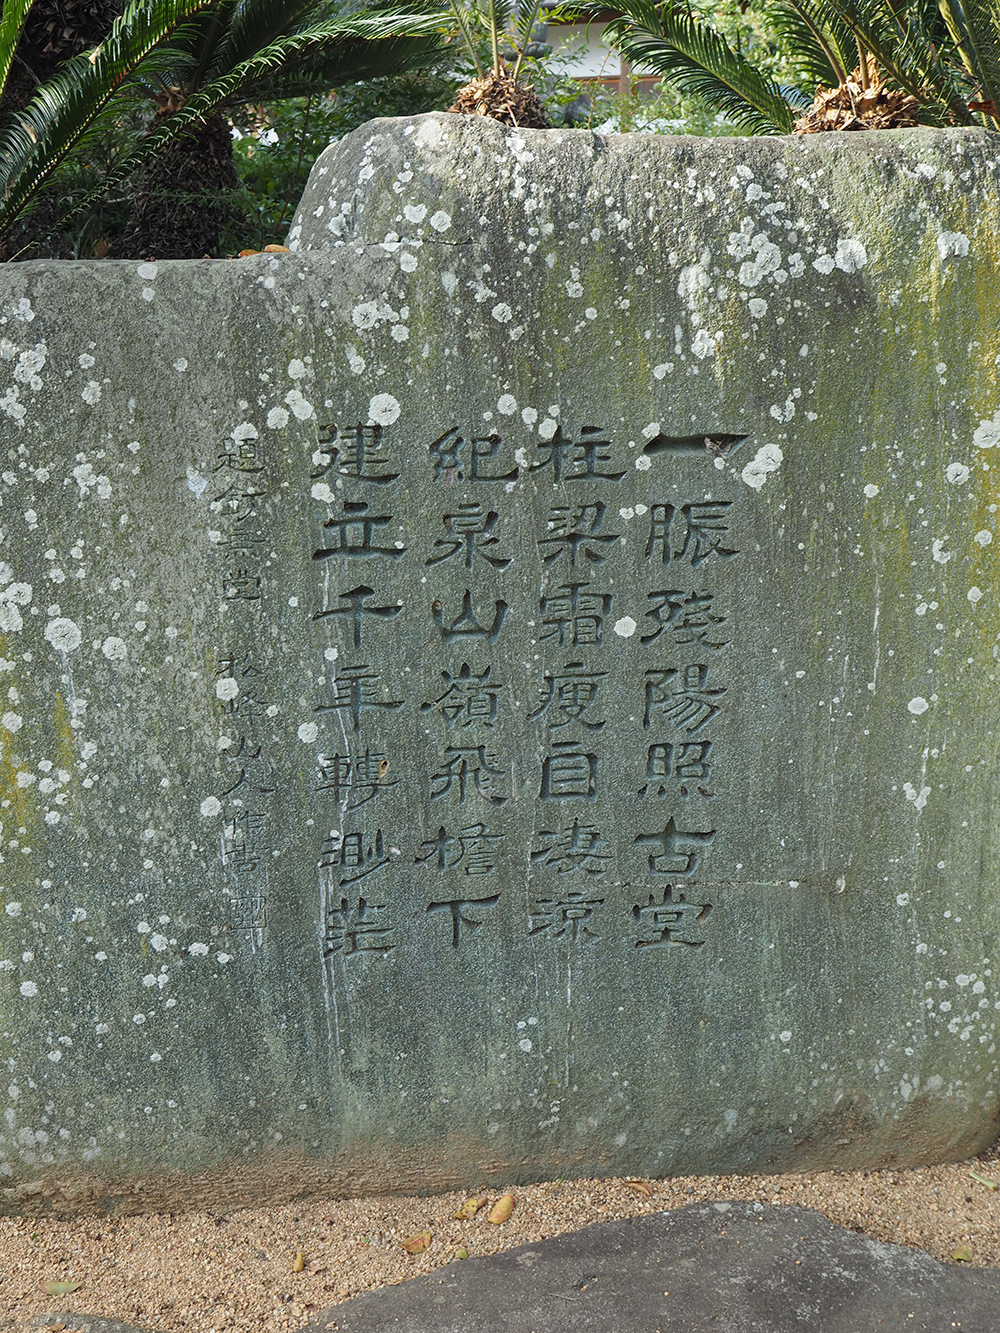 一脈殘陽照古堂
柱梁霜瘦自凄涼
紀泉山嶺飛檐下
建立千年轉渺茫
題釘無堂 松峰山人作書